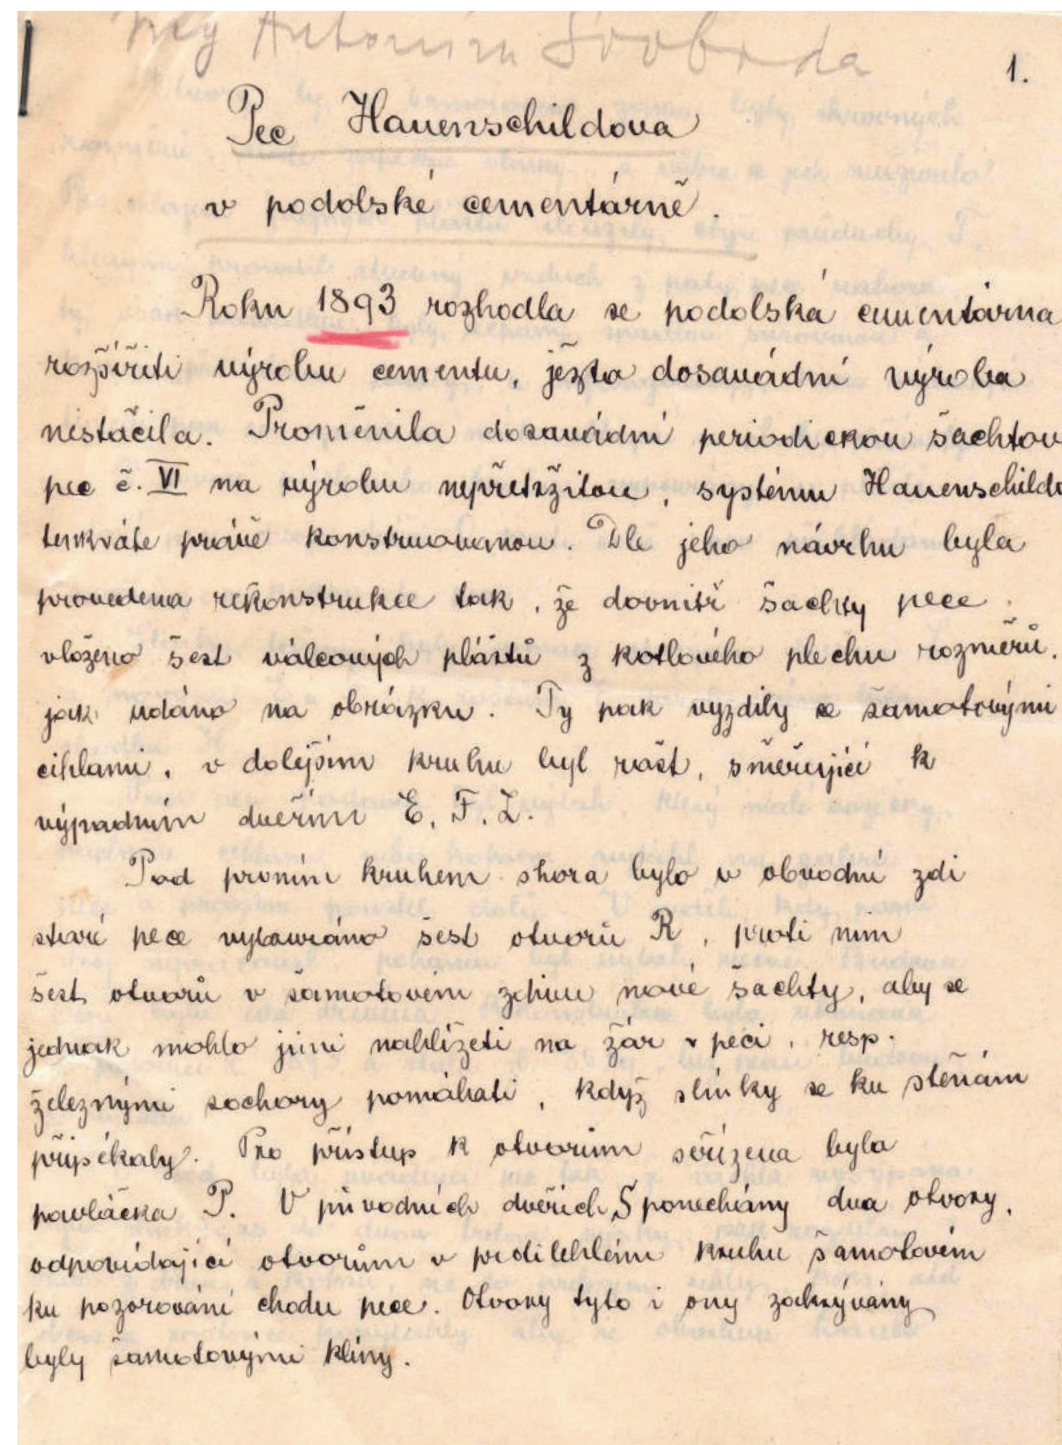 Ing Antonín Svoboda
1.
Pec Hauenschildova
v podolské cementárně.
Roku 1893 rozhodla se podolská cementárna
rozšířiti výrobu cementu, ježto dosavádní výroba
nestačila. Proměnila dosavádní periodickou šachtov
pec č. VI na výrobu nepřetržitou, systému Hauenschildo
tenkráte právě konstruovanou. Dle jeho návrhu byla
provedena rekonstrukce tak, že dovnitř šachty pece
vloženo šest válcových plášťů z kotlového plechu rozměrů,
jak udáno na obrázku. Ty pak vyzdily se šamotovými
cihlami, v dolejším kruhu byl rošt, směřující k
výpadním dveřím E, F, Z.
Pod prvním kruhem shora bylo v obvodní zdi
staré pece vybouráno šest otvorů R, proti nim
šest otvorů v šamotovém zdivu nové šachty, aby se
jednak mohlo jimi nahlížeti na žár v peci, resp.
železnými sochory pomáhati, když slínky se ku stěnám
připékaly. Pro přístup k otvorům seřízena byla
pavláčka P. V původních dveřích S ponechány dva otvory,
odpovídající otvorům v předilehlém kruhu šamotovém
ku pozorování chodu pece. Otvory tyto i ony zakrývány
byly šamotovými klíny.